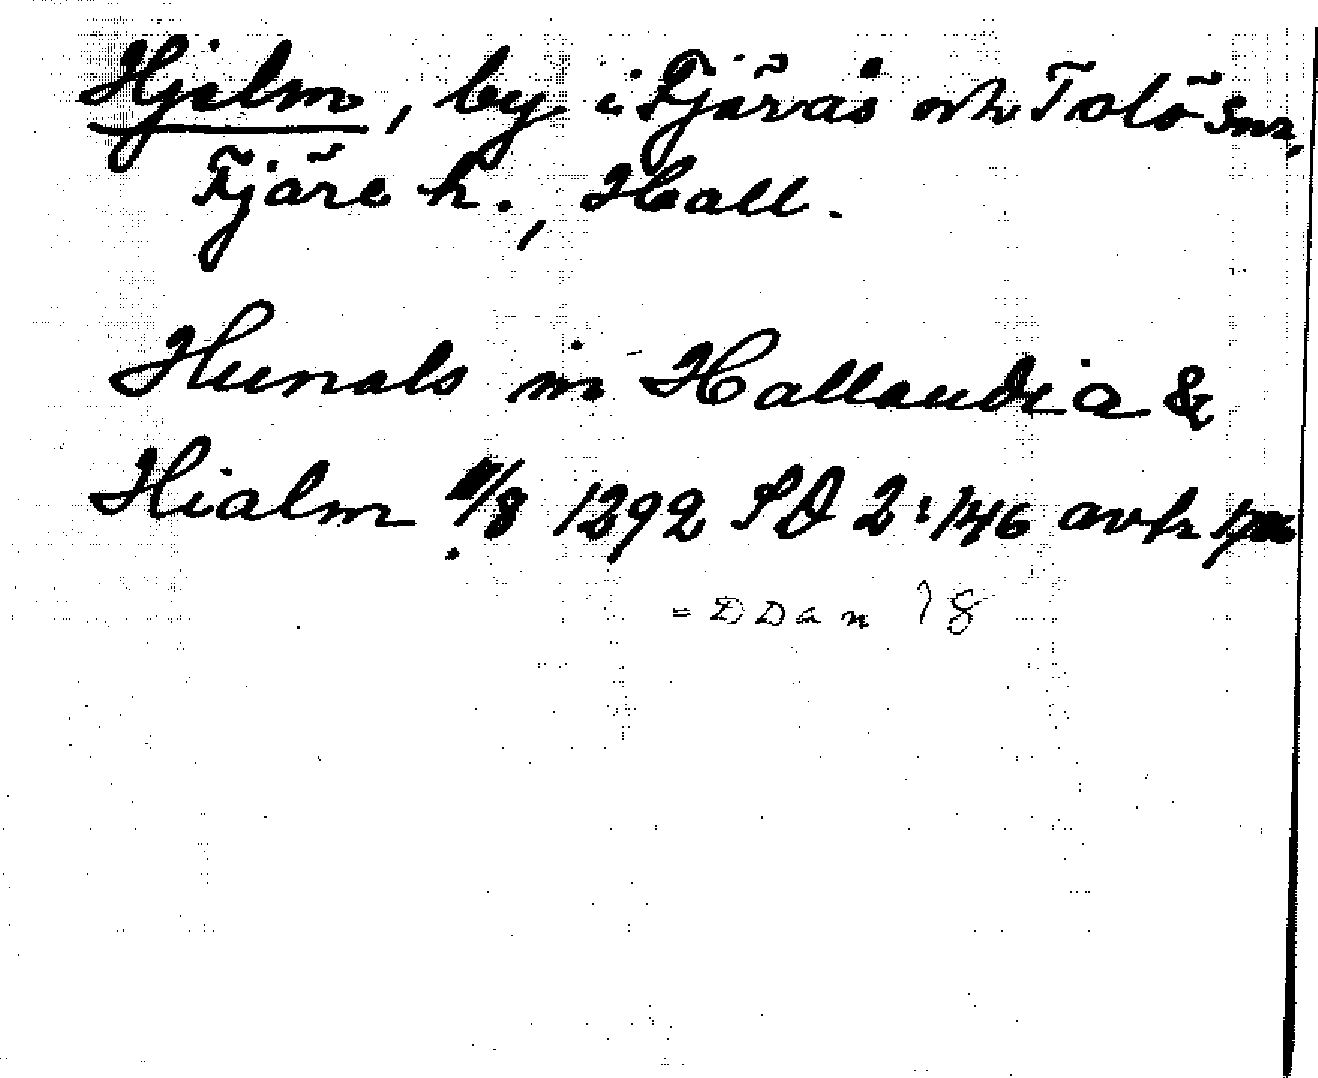 Hjelm, by i Fjärås och Tolö snr,
Fjäre h., Hall.
Hunals in Hallandia &
Hialm 11/8 1292 SD 2:146 avskr
= DDan 18